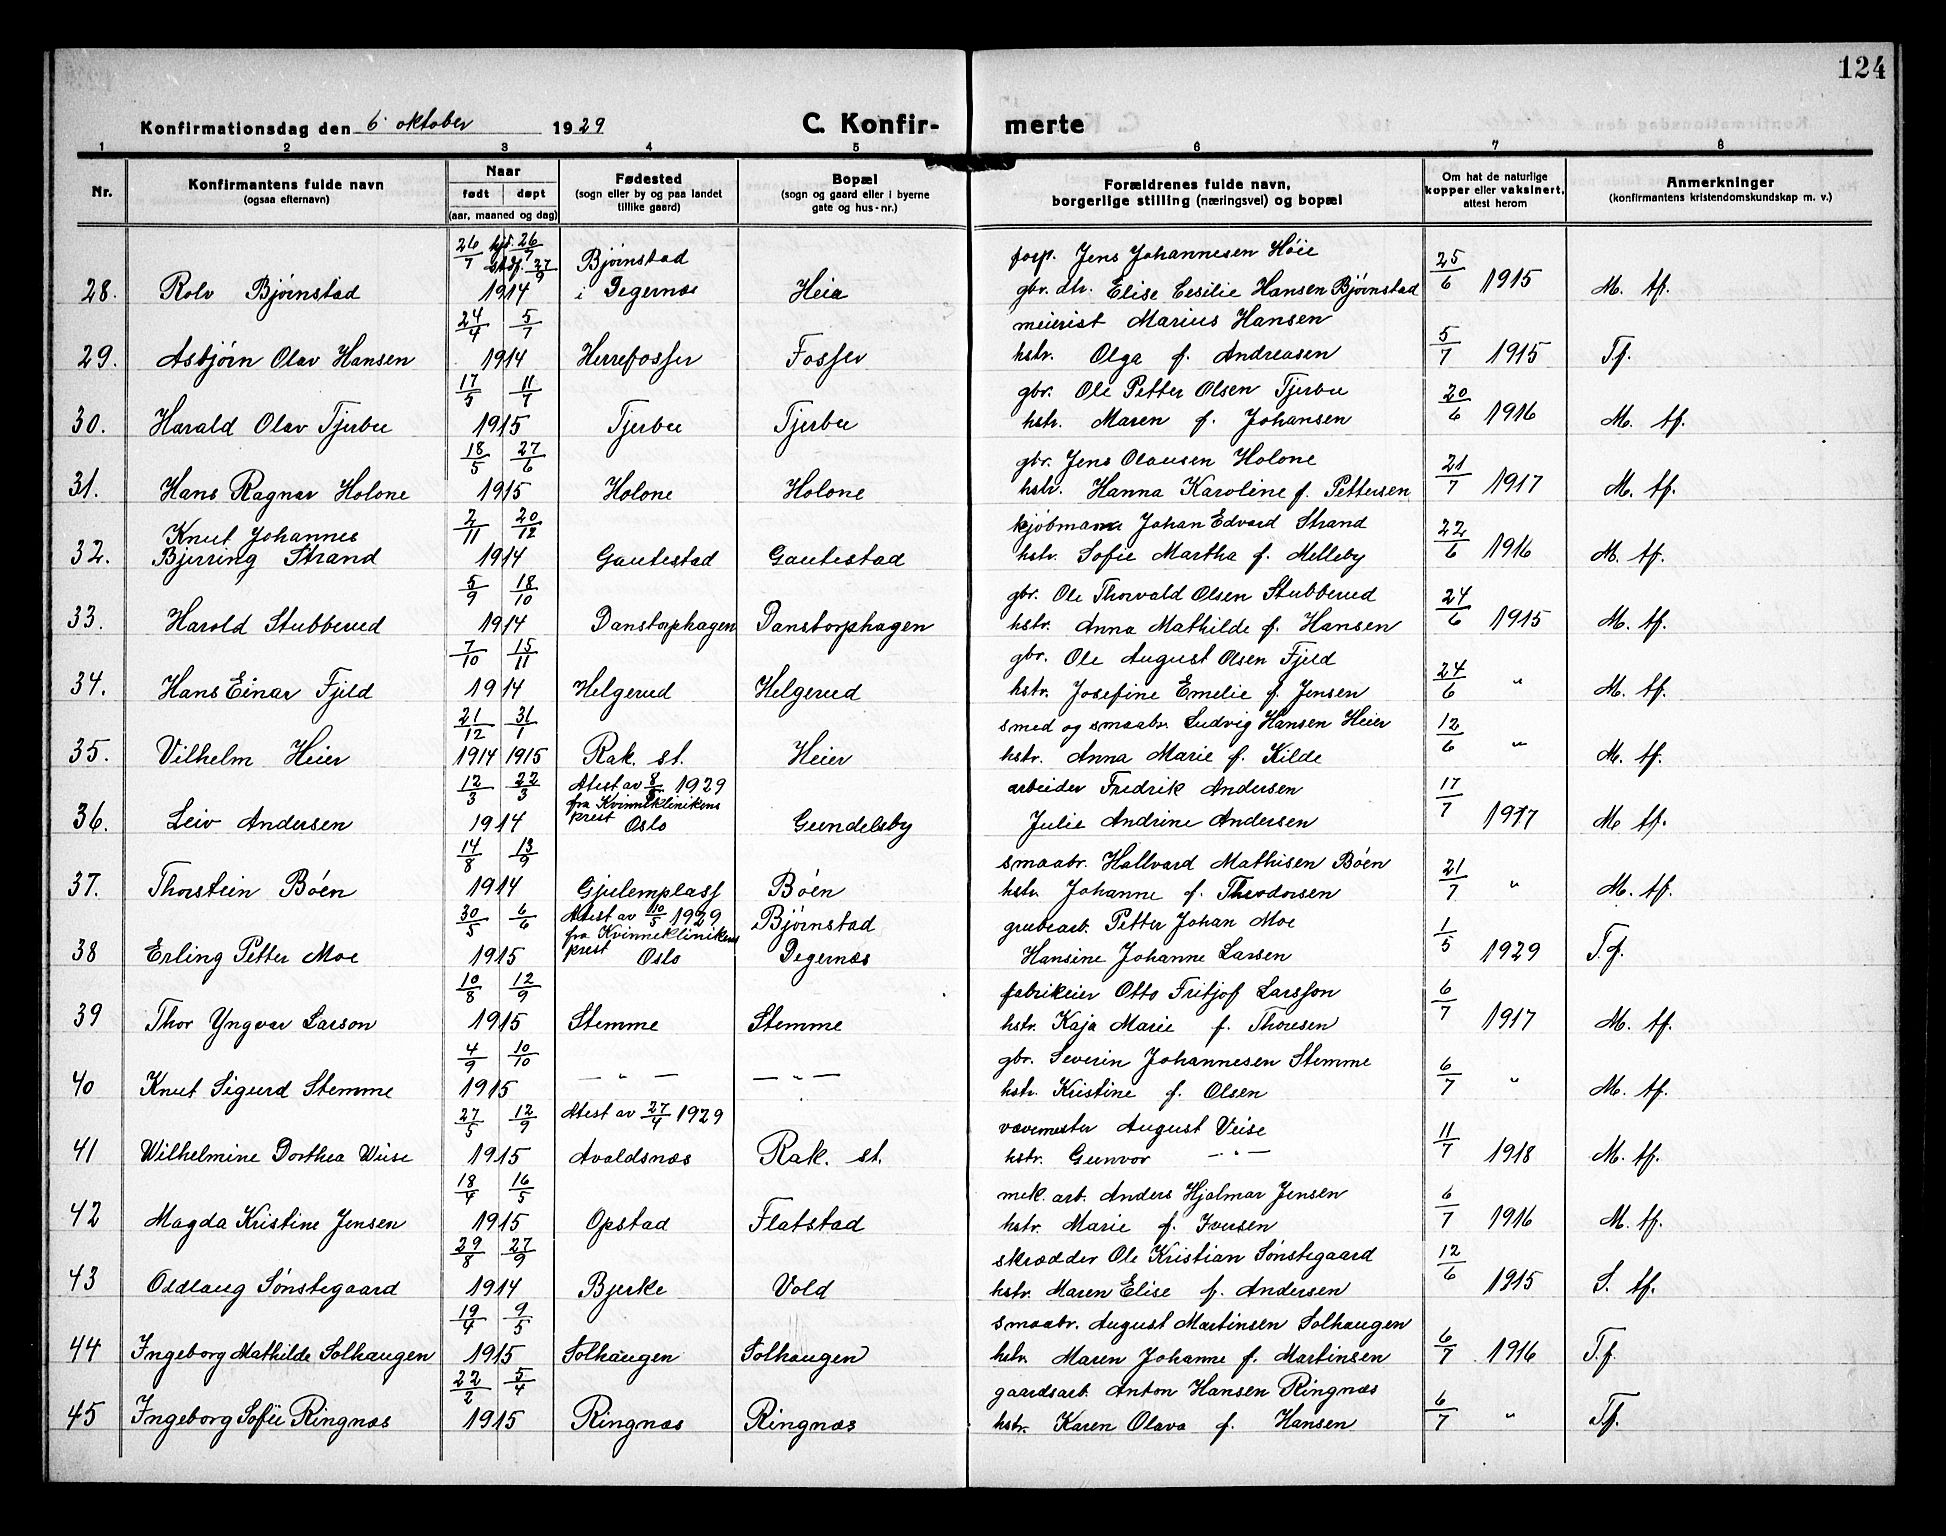 124
Konfirmationsdag den 6. oktober 1929 C. Konfir- merte
1 2 3 4 5 6 7 8
Nr. Konfirmantens fulde navn (ogsaa efternavn) Naar født døpt (aar, maaned og dag) Fødested (sogn eller by og paa landet tillike gaard) Bopæl (sogn og gaard eller i byerne gate og hus-nr.) Forældrenes fulde navn, borgerlige stilling (næringsvei) og bopæl Om hat de naturlige kopper eller vaksinert, attest herom Anmerkninger (konfirmantens kristendomskundskap m. v.)
26/7 hjd. 26/7 stdf. 27/9 Bjørnstad forp. Jens Johannesen Høie 25/6
28. Rolv Bjørnstad 1914 i Degernes Heia gbr. dtr. Elise Cesilie Hansen Bjørnstad 1915 M. tf.
24/4 5/7 meierist Marius Hansen 5/7
29. Asbjørn Olav Hansen 1914 Herrefosser Fosser hstr. Olga f. Andreasen 1915 T.f.
17/5 11/7 gbr. Ole Petter Olsen Tjerbu 20/6
30. Harald Olav Tjerbu 1915 Tjerbu Tjerbu hstr. Maren f. Johansen 1916 M. tf.
18/5 27/6 gbr. Jens Olausen Holone 21/7
31. Hans Ragnar Holone 1915 Holone Holone hstr. Hanna Karoline f. Pettersen 1917 M. tf.
Knut Johannes 2/11 20/12 kjøbmann Johan Edvard Strand 22/6
32. Bjerring Strand 1914 Gautestad Gautestad hstr. Sofie Martha f. Melleby 1916 M. tf.
5/9 18/10 gbr. Ole Thorvald Olsen Stubberud 24/6
33. Harold Stubberud 1914 Danstorphagen Danstorphagen hstr. Anna Mathilde f. Hansen 1915 M. tf.
7/10 15/11 gbr. Ole August Olsen Fjeld 24/6
34. Hans Einar Fjeld 1914 Helgerud Helgerud hstr. Josefine Emelie f. Jensen " M. tf.
21/12 31/1 smed og smaabr. Ludvig Hansen Heier 12/6
35. Vilhelm Heier 1914 1915 Rak. st. Heier hstr. Anna Marie f. Kilde " M. tf.
12/3 22/3 Atest av 8/5 1929 fra Kvinneklinikens prest arbeider Fredrik Andersen 17/7
36. Leiv Andersen 1914 Oslo Gundelsby Julie Andrine Andersen 1917 M. tf.
14/8 13/9 smaabr. Hallvard Mathisen Bøen 21/7
37. Thorstein Bøen 1914 Gjulemplass Bøen hstr. Johanne f. Theodorsen " M. tf.
30/5 6/6 Atest av 10/5 1929 fra Kvinneklinikens prest Bjørnstad grubearb. Petter Johan Moe 1/5
38 Erling Petter Moe 1915 Oslo Degernes Hansine Johanne Larsen 1929 T.f.
10/8 12/9 fabrikeier Otto Fritjof Larsson 6/7
39 Thor Yngvar Larson 1915 Stemme Stemme hstr. Kaja Marie f. Thoresen 1917 M. tf.
4/9 10/10 — " — — " — gbr. Severin Johannesen Stemme 6/7
40 Knut Sigurd Stemme 1915 hstr. Kristine f. Olsen " M. tf.
27/5 12/9 Atest av 27/4 1929 vævemester August Veise 11/7
41 Wilhelmine Dorthea Wiise 1915 Avaldsnæs Rak. st. hstr. Gunvor — " — 1918 M. tf.
18/4 16/5 mek. arb. Anders Hjalmar Jensen 6/7
42 Magda Kristine Jensen 1915 Opstad Flatstad hstr. Marie f. Iversen 1916 M. tf.
29/8 27/9 skrædder Ole Kristian Sønstegaard 12/6
43 Oddlaug Sønstegaard 1914 Bjerke Vold hstr. Maren Elise f. Andersen 1915 S. tf.
19/4 9/5 smaabr. August Martinsen Solhaugen 6/7
44 Ingeborg Mathilde Solhaugen 1915 Solhaugen Solhaugen hstr. Maren Johanne f. Martinsen 1916 T.f.
22/2 5/4 gaardsarb. Anton Hansen Ringnæs 6/7
45 Ingeborg Sofie Ringnæs 1915 Ringnæs Ringnæs hstr. Karen Olava f. Hansen " Tf.